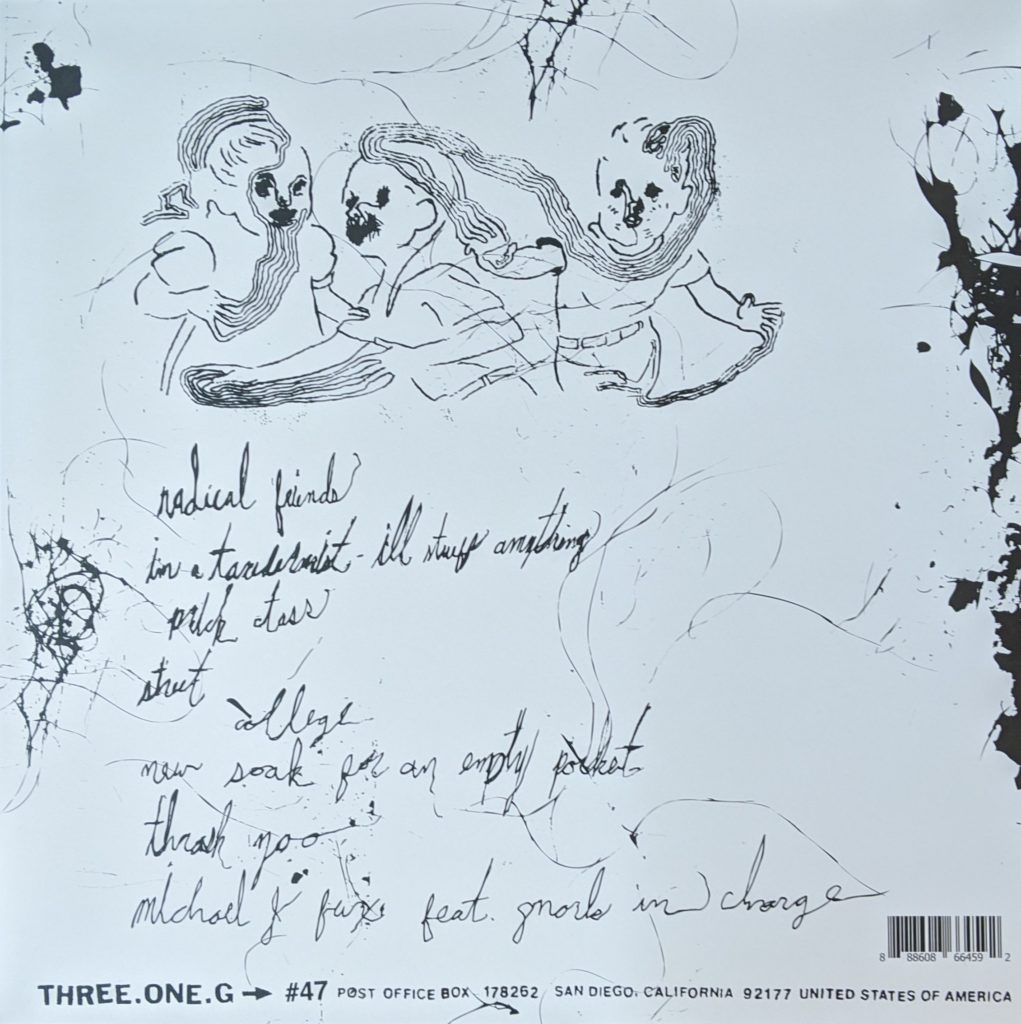 radical friends
im a taxidermist - ill stuff anything
pitch class
street
college
new soak for an empty pocket
thrash yoo
michael j fux feat. gnarls in charge
8 88608 66459 2
THREE.ONE.G → #47 POST OFFICE BOX 178262 SAN DIEGO, CALIFORNIA 92177 UNITED STATES OF AMERICA